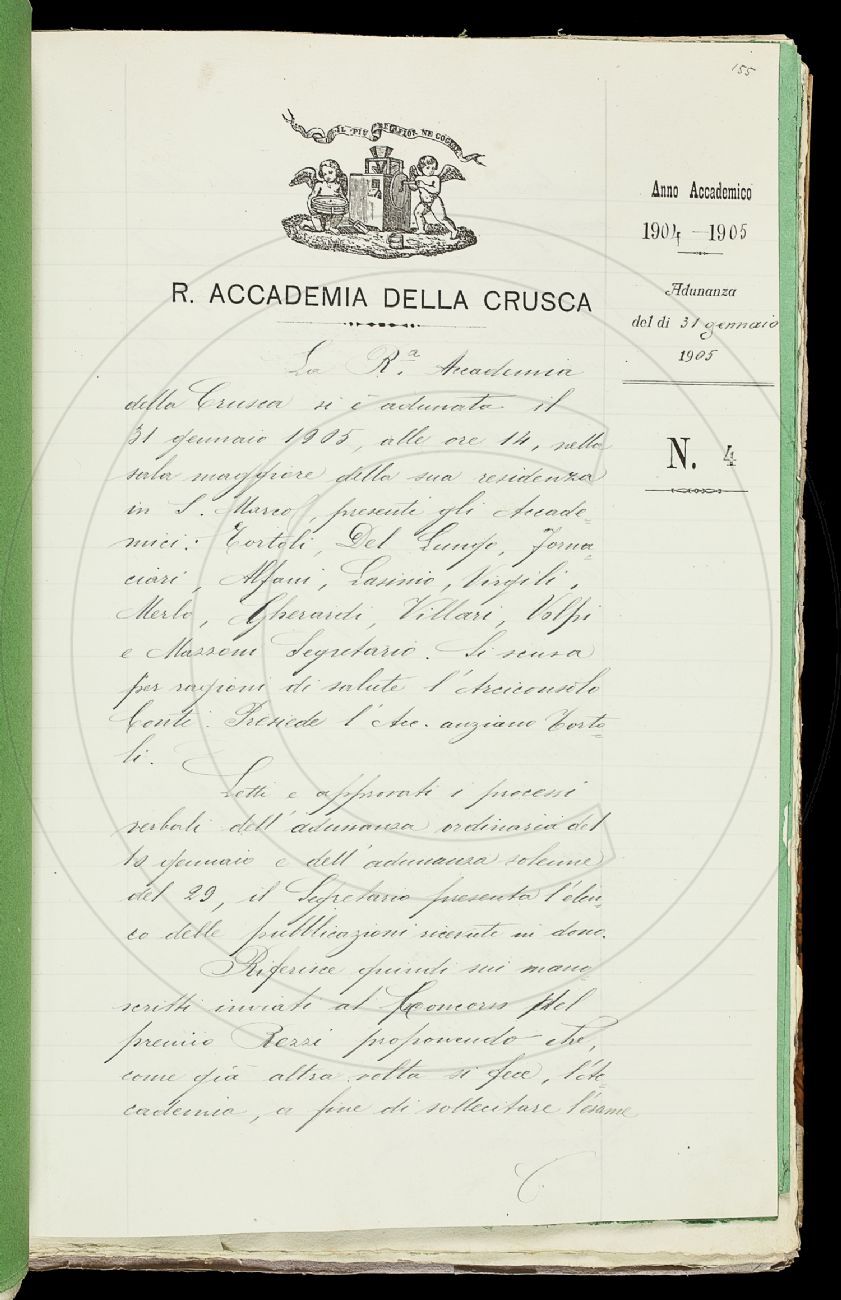 155
IL PIÙ BEL FIOR NE COGLIE
Anno Accademico
1904 - 1905
Adunanza
del dì 31 gennaio
1905
N. 4
R. ACCADEMIA DELLA CRUSCA
La R.a Accademia
della Crusca si è adunata il
31 gennaio 1905, alle ore 14, nella
sala maggiore della sua residenza
in S. Marco, presenti gli Accade=
mici: Tortoli, Del Lungo, Forna=
ciari, Alfani, Lasinio, Virgili,
Merlo, Gherardi, Villari, Volpi
e Mazzoni Segretario. Si scusa
per ragioni di salute l'Arciconsolo
Conti. Presiede l'Acc. anziano Torto=
li.
Letti e approvati i processi
verbali dell'adunanza ordinaria del
gennaio e dell'adunanza solenne
del 29, il Segretario presenta l'elen=
co delle pubblicazioni ricevute in dono.
Riferisce quindi sui mano=
scritti inviati al Concorso del
premio Rezzi proponendo che,
come già altra volta si fece, l'Ac=
cademia, a fine di sollecitare l'esame